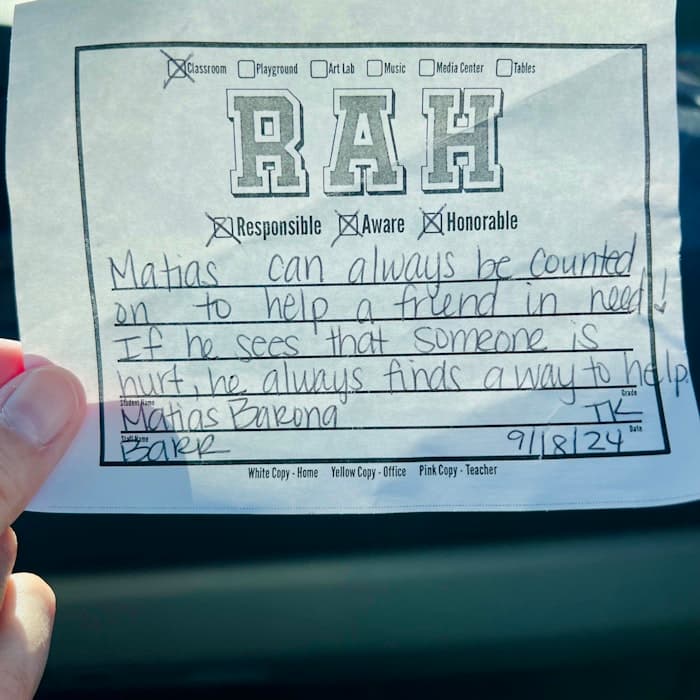 Classroom Playground Art Lab Music Media Center Tables
RAH
Responsible Aware Honorable
Matias can always be counted
on to help a friend in need!
If he sees that someone is
hurt, he always finds a way to help.
Student Name Grade
Matias Barona TK
Staff Name Date
Barr 9/18/24
White Copy - Home Yellow Copy - Office Pink Copy - Teacher